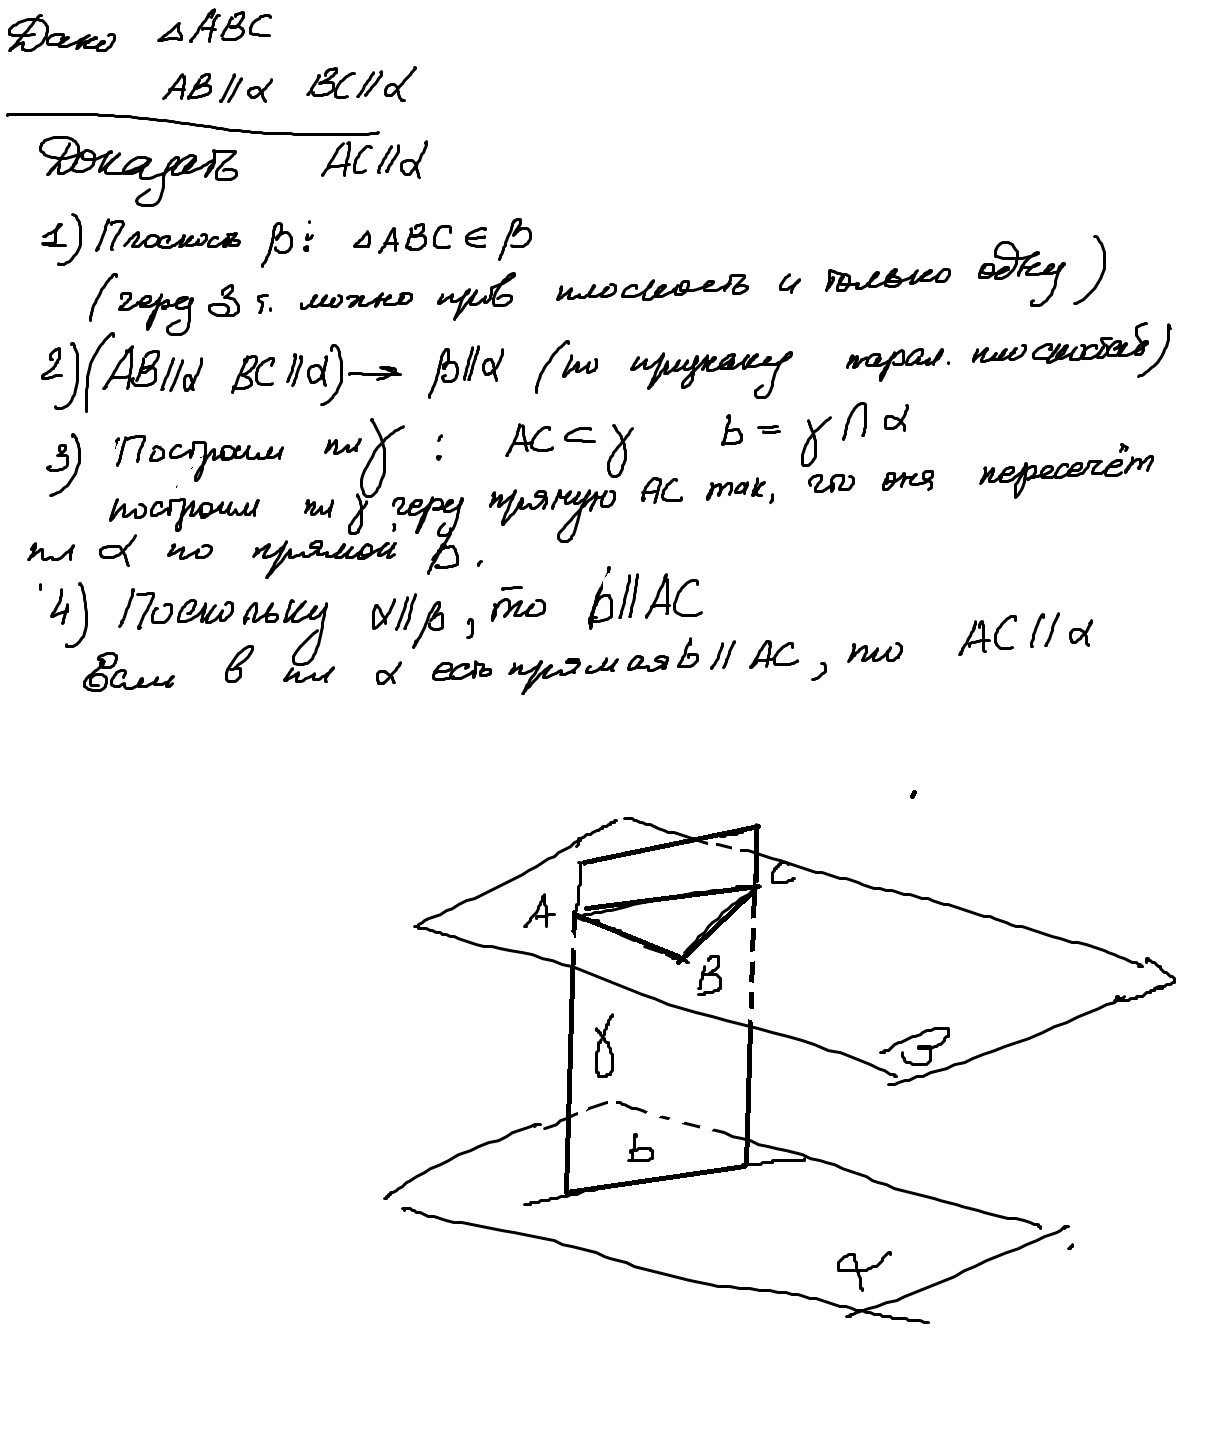 Дано △ABC
AB∥α BC∥α
Доказать AC∥α
1) Плоскость β: △ABC ∈ β
(через 3 т. можно пров плоскость и только одну)
2) (AB∥α BC∥α) → β∥α (по признаку парал. плоскостей)
3) Построим пл γ : AC ⊂ γ b = γ ∩ α
построим пл γ через прямую AC так, что она пересечёт
пл α по прямой b.
4) Поскольку α∥β, то b∥AC
Если в пл α есть прямая b∥AC, то AC∥α
C
A
B
γ
β
b
α